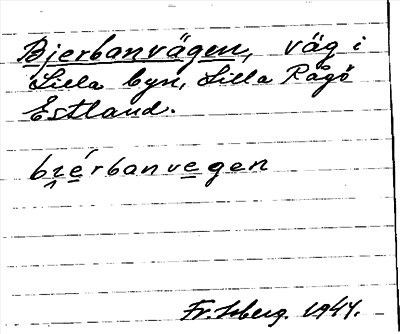 Bjerbanvägen, väg i
Lilla byn, Lilla Rågö
Estland.
bɪ̯érbanvegen
Fr. Isberg. 1944.